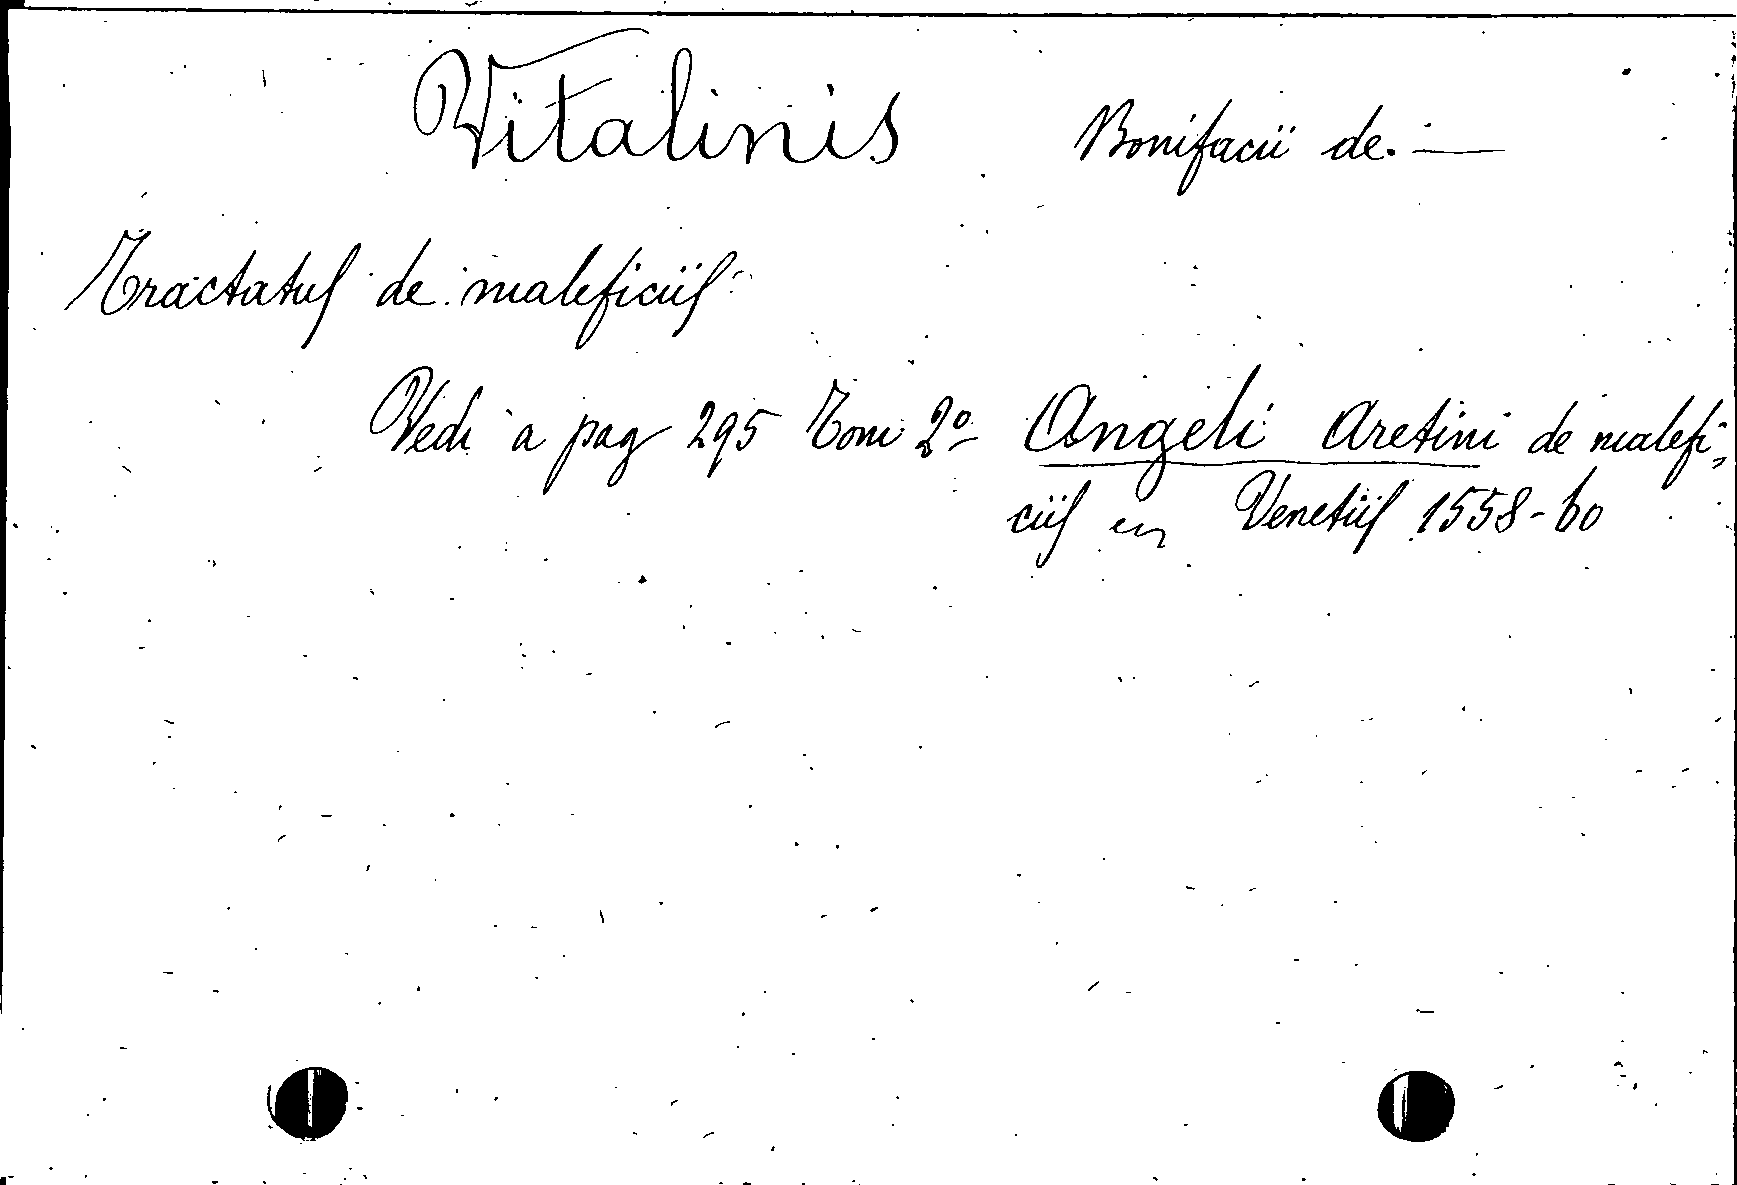 Vitalinis Bonifacii de. —
Tractatus de maleficiis
Vedi a pag 295 Tom 2º Angeli Aretini de malefi,
ciis Venetiis 1558-60